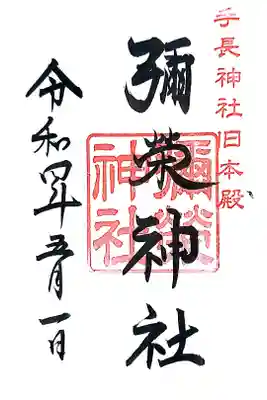 手長神社旧本殿
彌榮神社
彌榮神社
令和四年五月一日